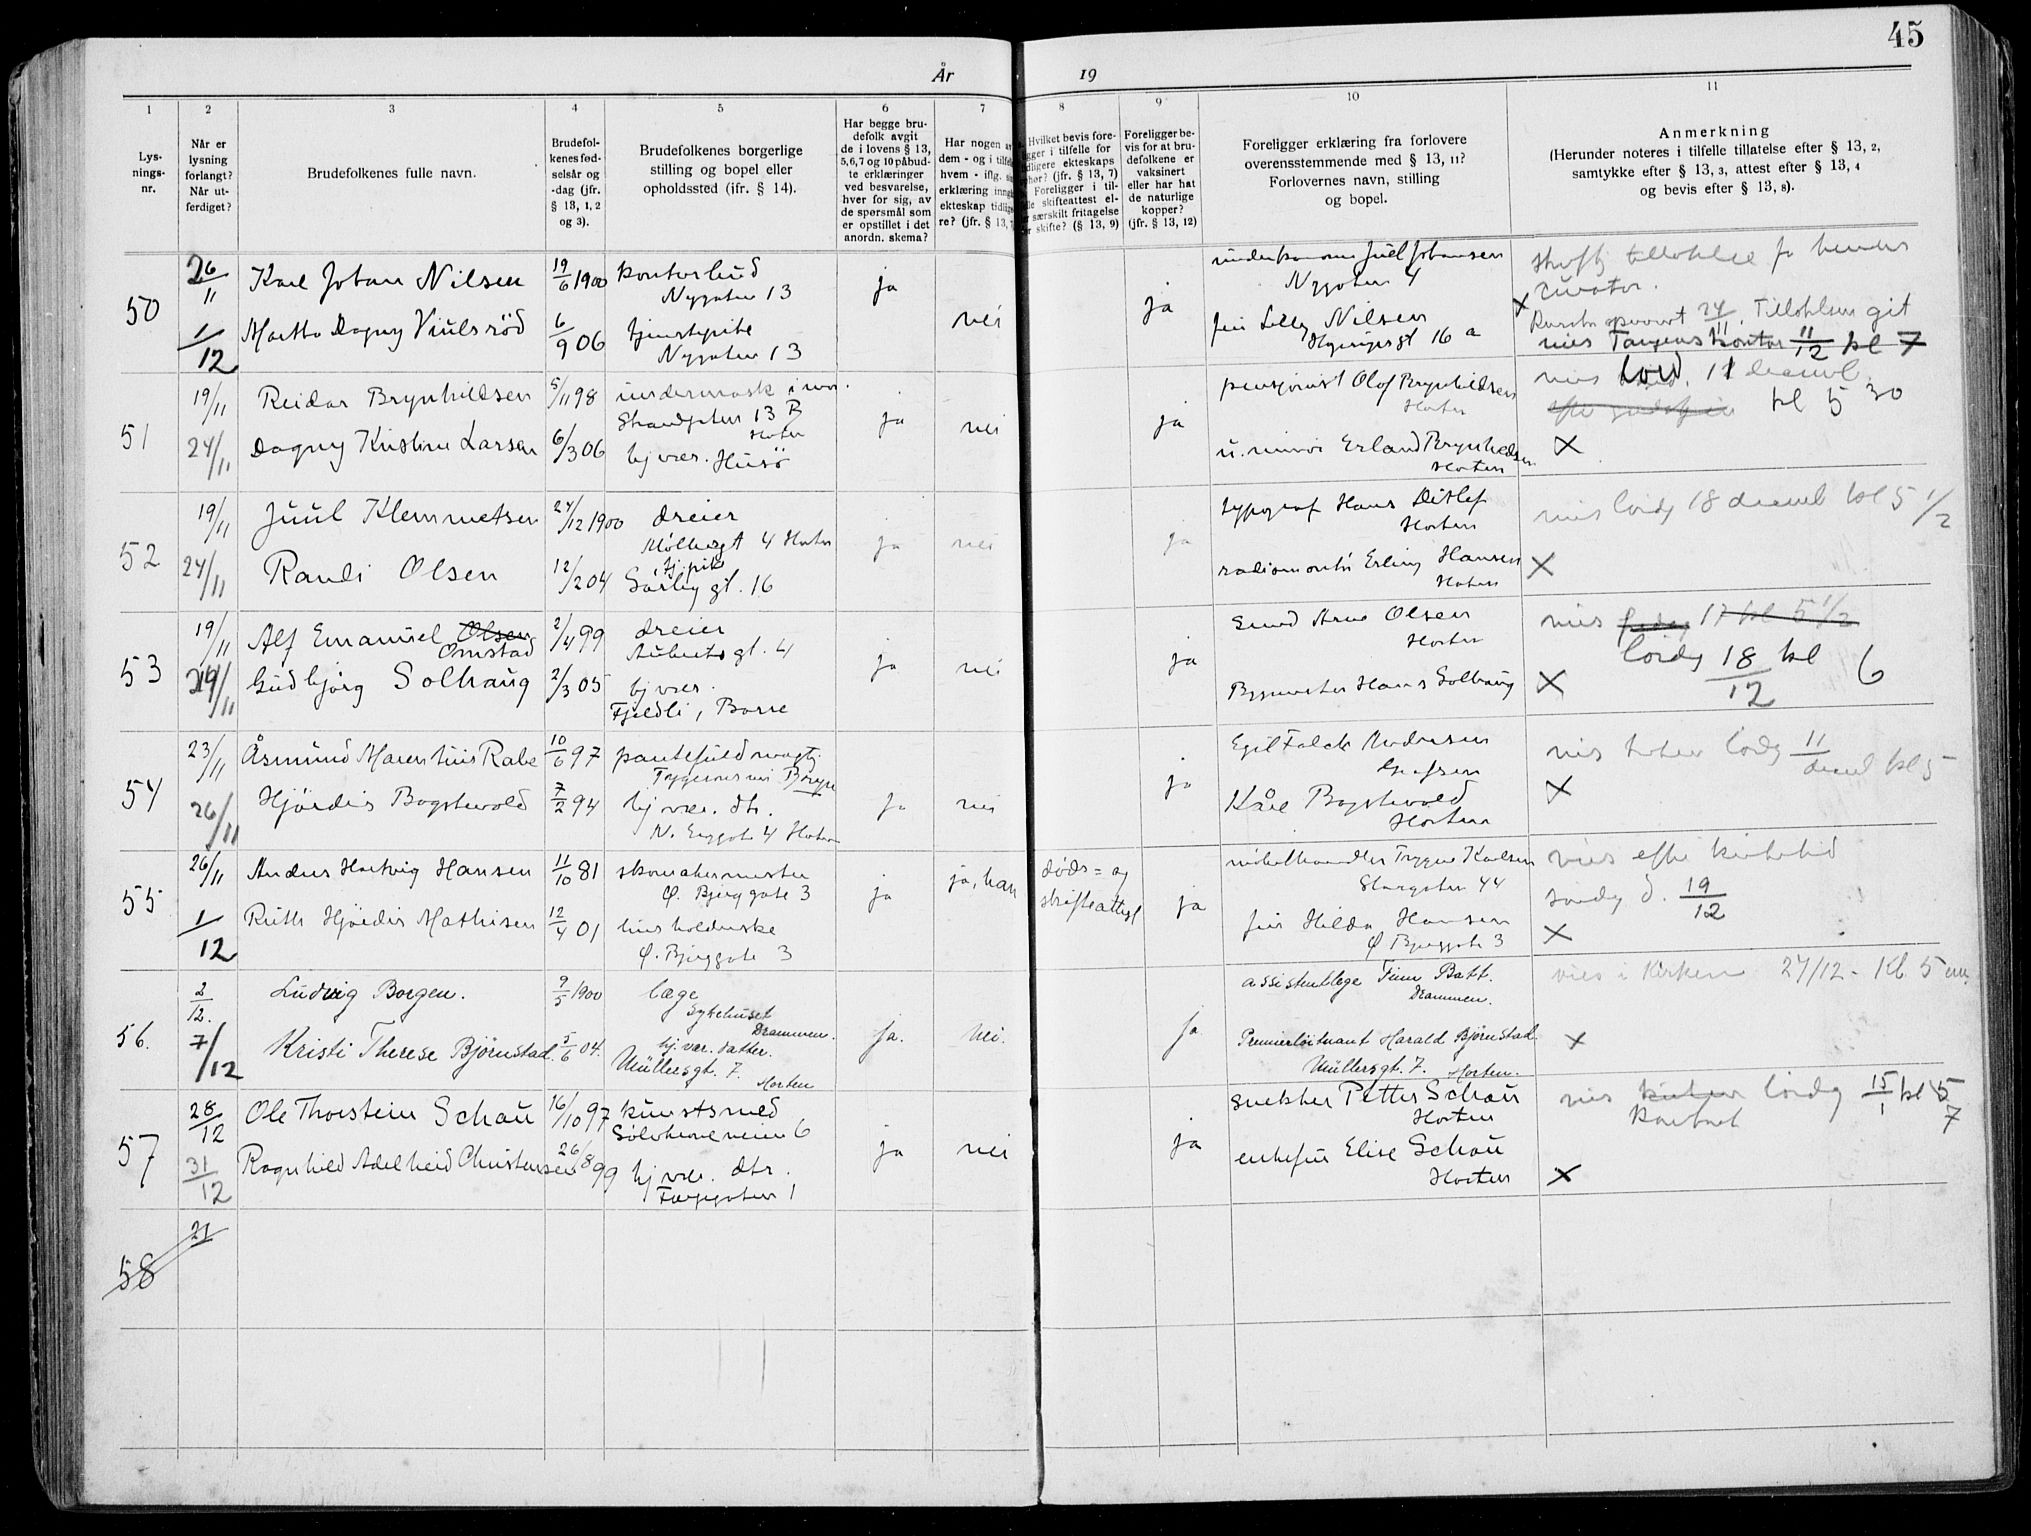 45
År 19
1 2 3 4 5 6 7 8 9 10 11
Lys-
nings-
nr.
Når er
lysning
forlangt?
Når ut-
ferdiget?
Brudefolkenes fulle navn.
Brudefol-
kenes fød-
selsår og
-dag (jfr.
§ 13, 1, 2
og 3).
Brudefolkenes borgerlige
stilling og bopel eller
opholdssted (jfr. § 14).
Har begge bru-
defolk avgit
de i lovens § 13,
5,6,7 og 10 påbud-
te erklæringer
ved besvarelse,
hver for sig, av
de spørsmål som
er opstillet i det
anordn. skema?
Har nogen av
dem - og i tilfelle
hvem - iflg.
erklæring inngått
ekteskap tidlige-
re? (jfr. § 13,
Hvilket bevis fore-
ligger i tilfelle for
tidligere ekteskaps
ophør? (jfr. § 13, 7)
Foreligger i til-
felle skifteattest el-
særskilt fritagelse
for skifte? (§ 13, 9)
Foreligger be-
vis for at bru-
defolkene er
vaksinert
eller har hat
de naturlige
kopper?
(jfr. § 13, 12)
Foreligger erklæring fra forlovere
overensstemmende med § 13, 11?
Forlovernes navn, stilling
og bopel.
Anmerkning
(Herunder noteres i tilfelle tillatelse efter § 13, 2,
samtykke efter § 13, 3, attest efter § 13, 4
og bevis efter § 13, 8).
50
26/11
1/12
Karl Johan Nilsen 19/6 1900 kontorbud
Nygaten 13
Martha Dagny Viulsrød 6/9 06 tjenestepike
Nygaten 13
ja nei ja
Juel Johansen
Nygaten 4
Lilly Nilsen
16 a
tillatelse
curator.
24/11. Tillatelsen git
vies Tangens kontor 11/12 kl 7
X
51
19/11
24/11
Reidar Brynhildsen 5/11 98 undermask i mar.
Strandgaten 13 B
Horten
Dagny Kristine Larsen 6/3 06 hj vær. Husø
ja nei ja
pensjonist Olof Brynhildsen
Horten
u. minør Erland Brynhildsen
Horten
vies lørd. 11 decemb.
kl 5 30
X
52
19/11
24/11
Juul Klemmetsen 24/12 1900 dreier
Møllergt 4 Horten
Randi Olsen 12/2 04 tj.pike
Sørbygt. 16
ja nei ja
typograf Hans Ditlef
Horten
radiomontør Erling Hansen
Horten
vies lørdg 18 decemb kl 5 1/2
X
53
19/11
24/11
Alf Emanuel Olsen 2/4 99 dreier
Omstad Aubertsgt. 4
Gudbjørg Solhaug 2/3 05 hj vær.
Fjeldli, Borre
ja nei ja
Arne Olsen
Horten
Bygmester Hans Solhaug
vies fredag 17 kl 5 1/2
lørdg 18/12 kl 6
X
54
23/11
26/11
Åsmund Marentius Rabe 10/6 97 pantefuldmægtig
Bergen
Hjørdis Bogstvold 7/2 94 hj vær. dtr.
N. Enggate 4 Horten
ja nei ja
Egil Falck Andresen
Kåre Bogstvold
Horten
vies lørdg 11/decemb kl 5
X
55
26/11
1/12
Anders Hartvig Hansen 11/10 81 skomakermester
Ø. Bjerggate 3
Ruth Hjørdis Mathisen 12/4 01 husholderske
Ø. Bjerggate 3
ja ja, han døds- og
skifteattest ja
møbelhandler Trygve Karlsen
Storgaten 44
fru Hilda Hansen
Ø Bjerggate 3
vies efter kirketid
søndg d. 19/12
X
56.
2/12.
7/12
Ludvig Borgen. 9/5 1900 læge
Sykehuset
Drammen.
Kristi Therese Bjørnstad. 5/6 04. hj.vær. datter.
Müllersgt. 7.
Horten
ja. nei. ja
assistentlege Finn Batt.
Drammen.
Premierløitnant Harald Bjørnstad.
Müllersgt. 7. Horten.
vies i Kirken 27/12 - Kl. 5 em.
X
57
28/12
31/12
Ole Thorstein Schau 16/10 97 kunstsmed
Sølvkroneveien 6
Ragnhild Adelheid Christensen 26/8 99 hj vær. dtr.
Færgegaten 1
ja nei ja
snekker Petter Schau
Horten
enkefru Elise Schau
Horten
vies kirken lørdg 15/1 kl 5
kontoret 7
X
58
21